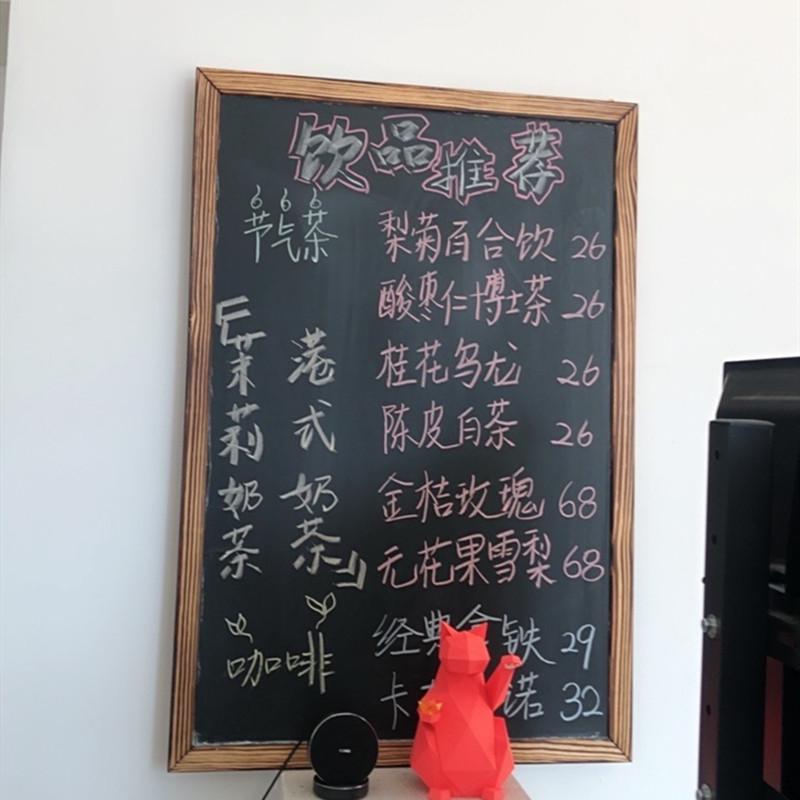 饮品推荐
节气茶
梨菊百合饮 26
酸枣仁博士茶 26
桂花乌龙 26
陈皮白茶 26
金桔玫瑰 68
无花果雪梨 68
「茉莉奶茶
港式奶茶」
咖啡
经典拿铁 29
卡 诺 32